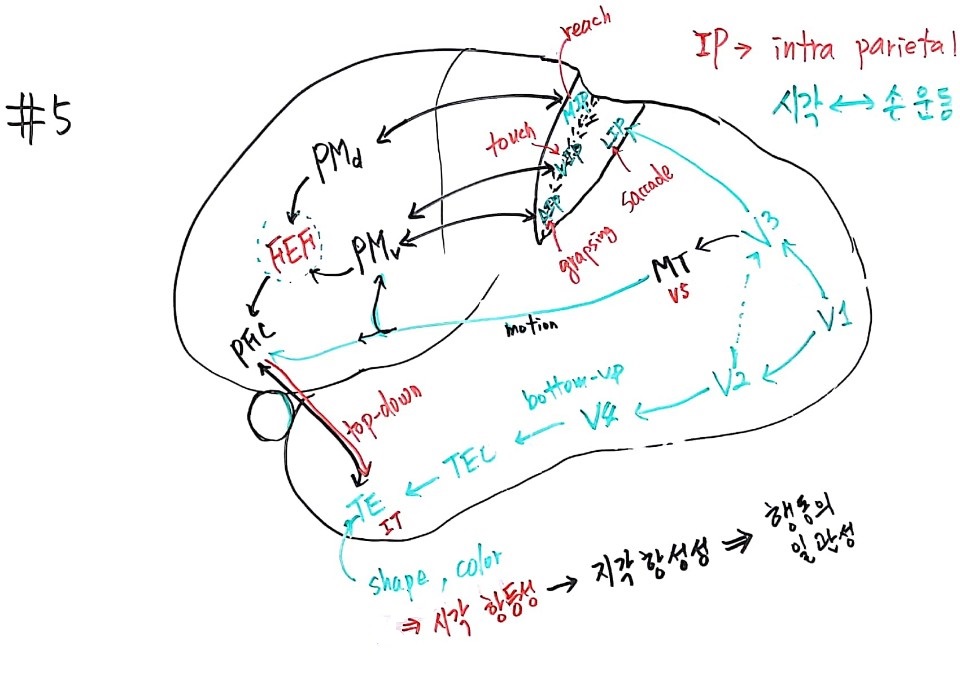 #5
reach
IP → intra parietal
시각 ↔ 손 운동
MIP
LIP
touch
VIP
saccade
AIP
grapsing
PMd
FEF
PMv
V3
MT
V5
V1
motion
PFC
V2
bottom-up
top-down
V4
TEC
TE
IT
shape, color
⇒ 시각 항등성 → 지각 항성성 ⇒ 행동의
일관성